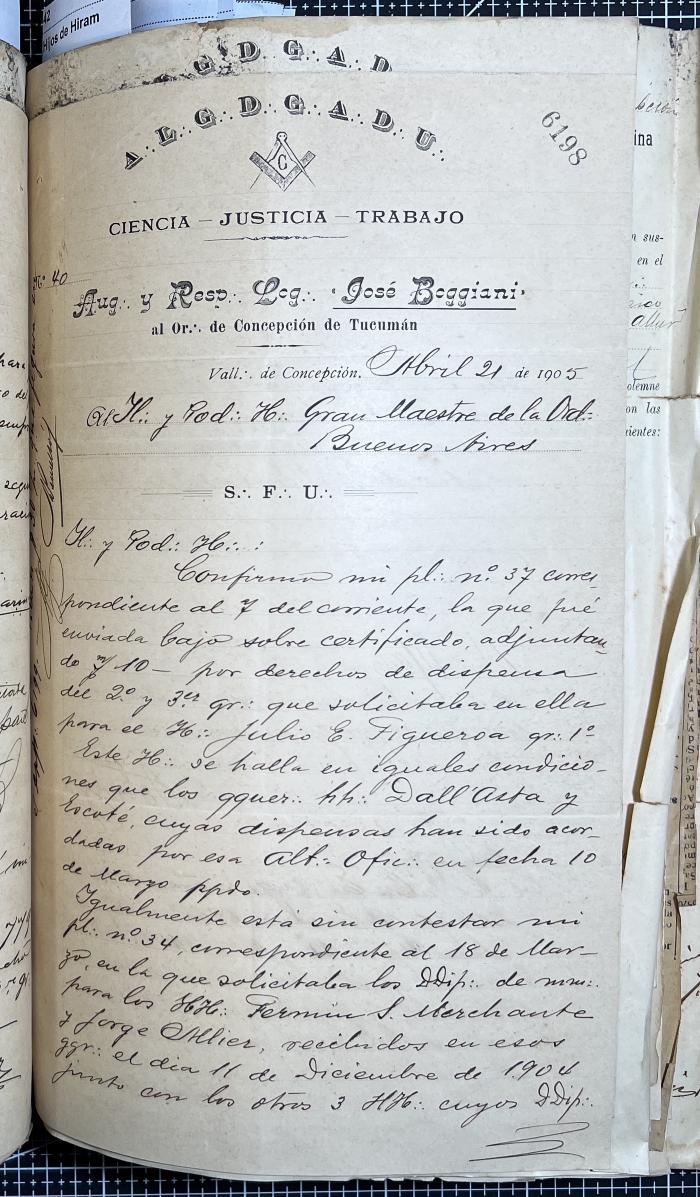 42
Hijos de Hiram
G∴ D∴ G∴ A∴ D
A∴ L∴ G∴ D∴ G∴ A∴ D∴ U∴
G
6198
CIENCIA – JUSTICIA – TRABAJO
Nº 40
Aug∴ y Resp∴ Log∴ "José Boggiani"
al Or∴ de Concepción de Tucumán
Vall∴ de Concepción, Abril 21 de 1905
Al Il∴ y Pod∴ H∴ Gran Maestre de la Ord∴
Buenos Aires
S∴ F∴ U∴
Il∴ y Pod∴ H∴ :
Confirmo mi pl∴ nº 37 corres-
pondiente al 7 del corriente, la que fué
enviada bajo sobre certificado, adjuntan-
do $ 10 – por derechos de dispensa
del 2º y 3er gr∴ que solicitaba en ella
para el H∴ Julio E. Figueroa gr∴ 1º
Este H∴ se halla en iguales condicio-
nes que los qquer∴ hh∴ Dall'Asta y
Escoté, cuyas dispensas han sido acor-
dadas por esa Alt∴ Ofic∴ en fecha 10
de Marzo ppdo.
Igualmente está sin contestar mi
pl∴ nº 34, correspondiente al 18 de Mar-
zo, en la que solicitaba los DDip∴ de mm∴
para los HH∴ Fermin S. Merchante
y Jorge Allier, recibidos en esos
ggr∴ el dia 11 de Diciembre de 1904
junto con los otros 3 HH∴ cuyos DDip∴